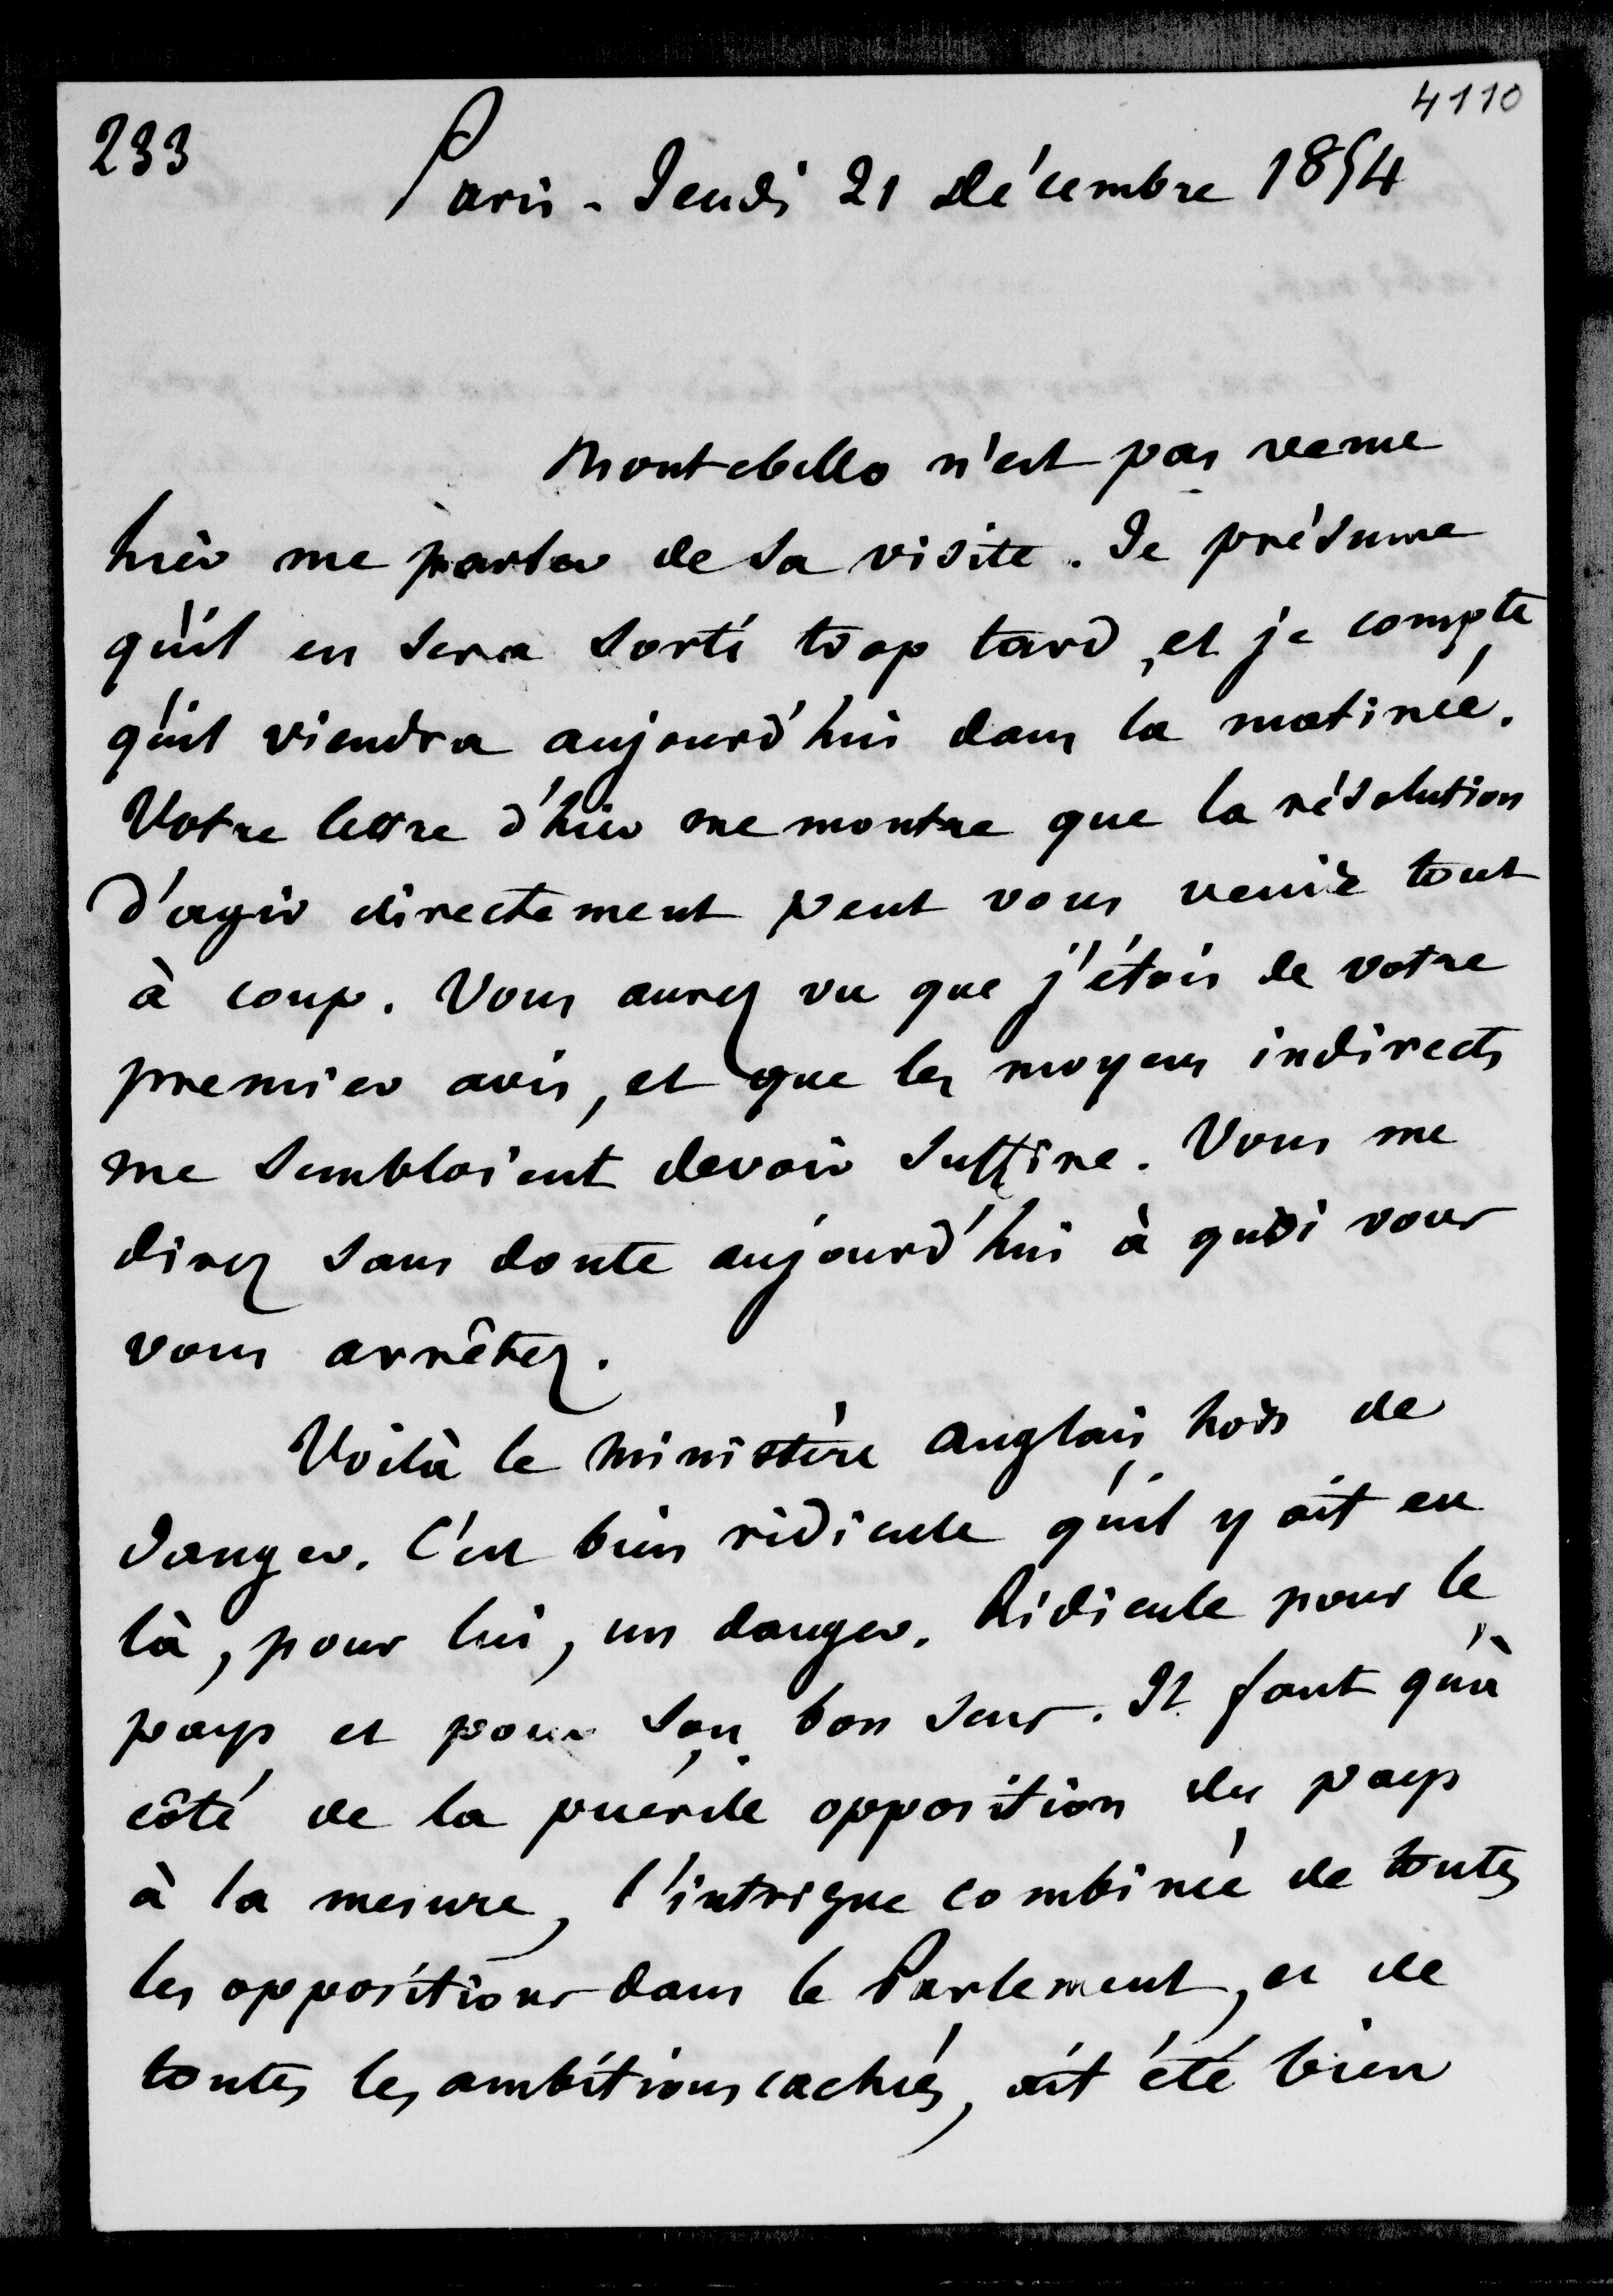 4110
233
Paris - Jeudi 21 décembre 1854
Montebello n'est pas venu
hier me parler de sa visite. Je présume
qu'il en sera sorti trop tard, et je compte
qu'il viendra aujourd'hui dans la matinée.
Votre lettre d'hier me montre que la résolution
d'agir directement peut vous venir tout
à coup. Vous aurez vu que j'étois de votre
premier avis, et que les moyens indirects
me sembloient devoir suffire. Vous me
direz sans doute aujourd'hui à quoi vous
vous arrêtez.
Voilà le ministère anglais hors de
danger. C'est bien ridicule qu'il y ait eu
là, pour lui, un danger. Ridicule pour le
pays et pour son bon sens. Il faut qu'à
côté de la puérile opposition du pays
à la mesure, l'intrigue combinée de toutes
les oppositions dans le Parlement, et de
toutes les ambitions cachées, ait été bien